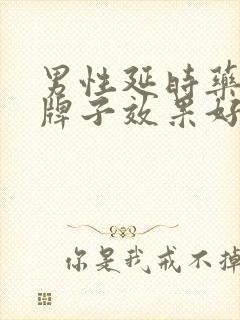 男性延时药
牌子效果好
你是我戒不掉